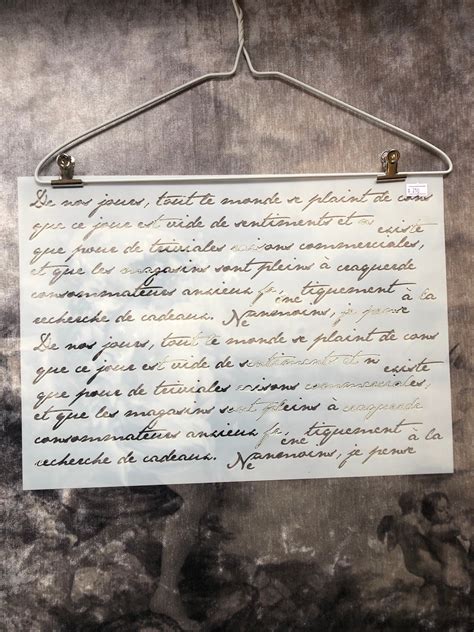 De nos jours, tout le monde se plaint de cons
que ce jour est vide de sentiments et n existe
que pour de triviales raisons commerciales,
et que les magasins sont pleins à craquerde
consommateurs anxieux fr, éné, tiquement à la
recherche de cadeaux. Neanmoins, je pense
De nos jours, tout le monde se plaint de cons
que ce jour est vide de sentiments et n existe
que pour de triviales raisons commerciales,
et que les magasins sont pleins à craquerde
consommateurs anxieux fr, éné, tiquement à la
recherche de cadeaux. Neanmoins, je pense